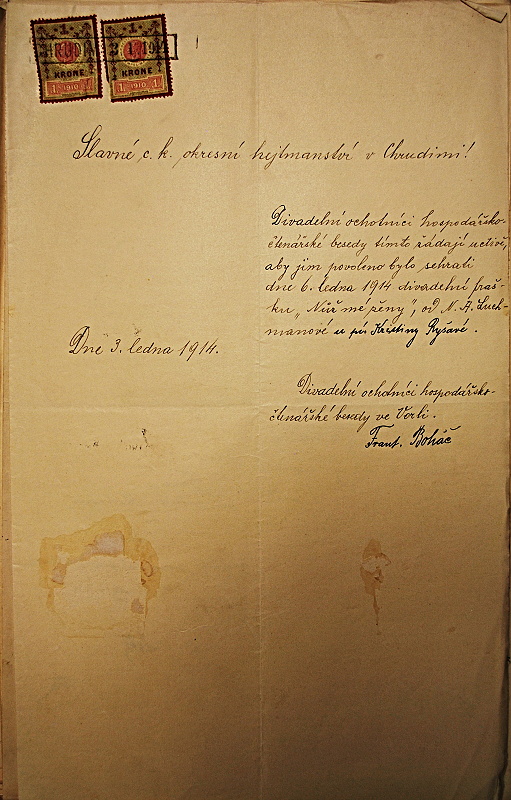 1
KRONE
1 1910 1
1
KRONE
1 1910 1
Slavné c. k. okresní hejtmanství v Chrudimi!
Divadelní ochotníci hospodářsko-
čtenářské besedy tímto žádají uctivě,
aby jim povoleno bylo sehrati
dne 6. ledna 1914 divadelní fraš-
ku „Nůž mé ženy", od N. A. Luch-
manové u pí Kristiny Ryšavé.
Dne 3. ledna 1914.
Divadelní ochotníci hospodářsko-
čtenářské besedy ve Vorli.
Frant. Boháč